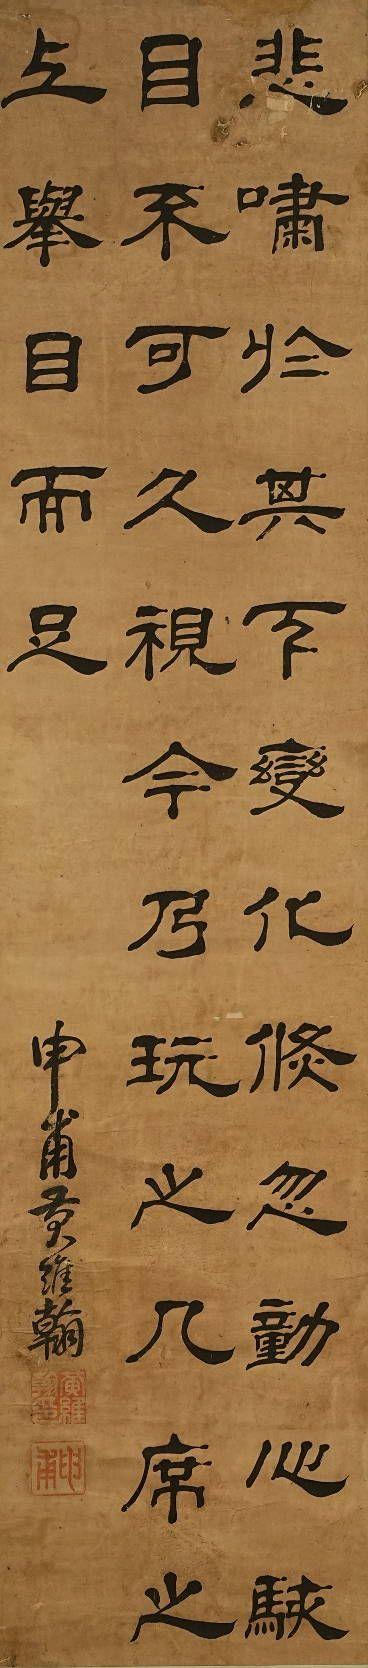 悲嘯於其下變化倏忽動心駴
目不可久視今乃玩之几席之
上舉目而足
申甫黃維翰
黃維翰印
申甫